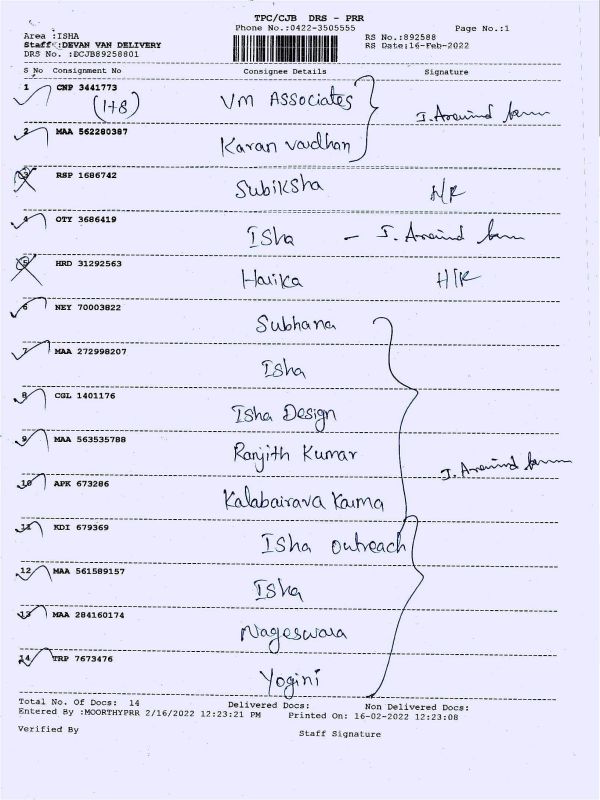 TPC/CJB DRS - PRR
Phone No.:0422-3505555 Page No.:1
Area :ISHA RS No.:892588
Staff :DEVAN VAN DELIVERY RS Date:16-Feb-2022
DRS No. :DCJB89258801
S No Consignment No Consignee Details Signature
1 CNP 3441773 VM Associates
(1+8) J. Aravind
2 MAA 562280387 Karan vardhan
3 RSP 1686742 Subiksha H/R
4 OTY 3686419 Isha - J. Aravind
5 HRD 31292563 Harika H/R
6 NEY 70003822 Subhana
7 MAA 272998207 Isha
8 CGL 1401176 Isha Design
9 MAA 563535788 Ranjith Kumar J. Aravind
10 APK 673286 Kalabairava Karma
11 KDI 679369 Isha outreach
12 MAA 561589157 Isha
13 MAA 284160174 Nageswara
14 TRP 7673476 Yogini
Total No. Of Docs: 14 Delivered Docs: Non Delivered Docs:
Entered By :MOORTHYPRR 2/16/2022 12:23:21 PM Printed On: 16-02-2022 12:23:08
Verified By Staff Signature